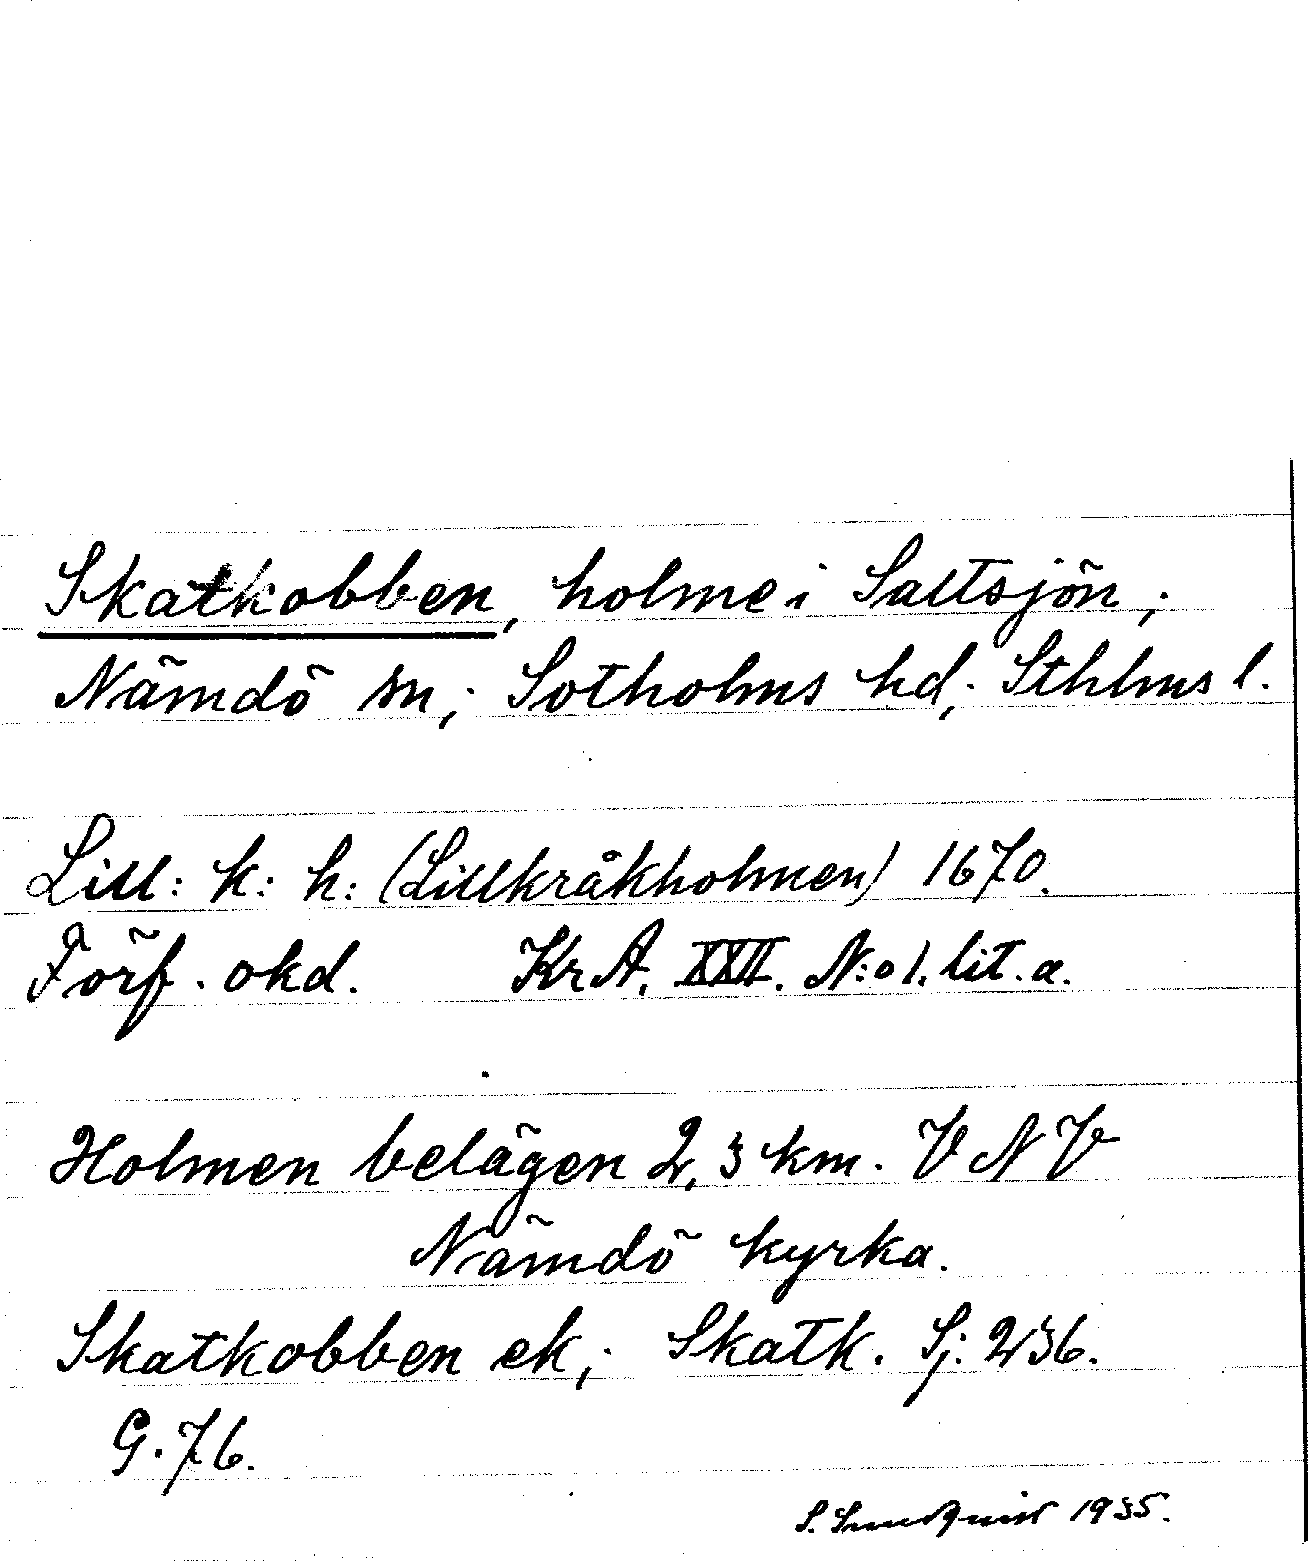 Skatkobben, holme i Saltsjön;
Nämdö sn; Sotholms hd; Sthlms l.
Lill: k: h: (Lillkråkholmen) 1670.
Förf. okd. KrA. XXII. N:o 1. lit. a.
Holmen belägen 2,3 km. V N V
Nämdö kyrka.
Skatkobben ek; Skatk. Sj. 236.
G. 76.
S. Lundquist 1935.